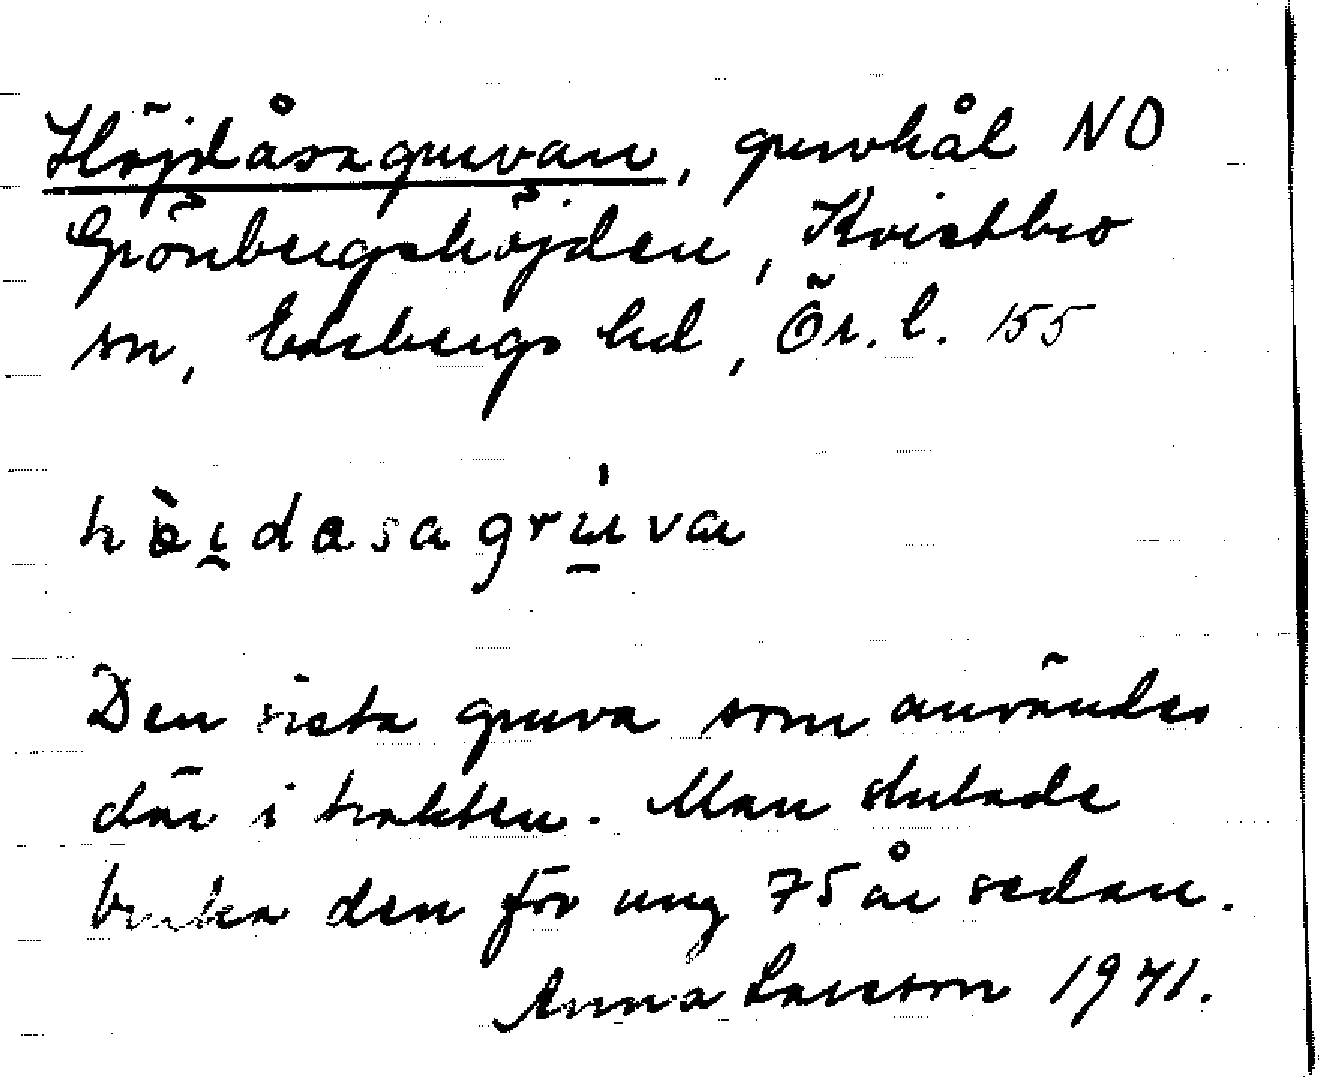 Höjdåsagruvan, gruvhål NO
Grönbergshöjden, Kvistbro
sn, Edsbergs hd, Ör. l. 155
hö̀i̯dasagrú̱van
Den sista gruva som användes
där i trakten. Man slutade
bruka den för ung 75 år sedan.
Anna Larsson 1941.